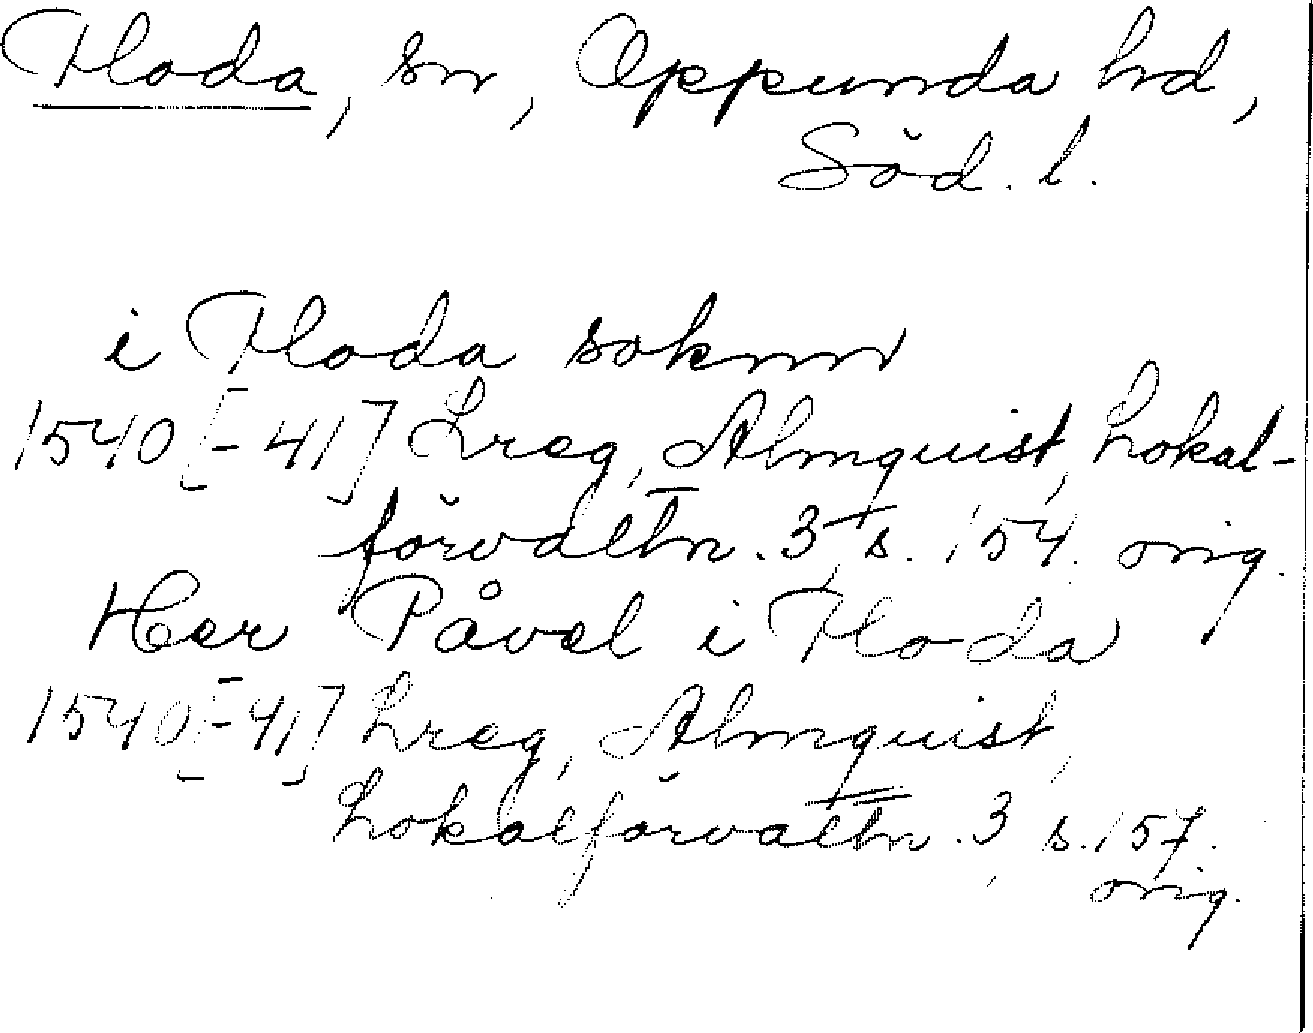 Floda, sn, Oppunda hd,
Söd. l.
i Floda soknn
1540 [-41] Lreg, Almquist, Lokal-
förvaltn. 3, s. 154. orig.
Her Påvel i Floda
1540 [-41] Lreg, Almquist,
Lokalförvaltn. 3, s. 157.
orig.